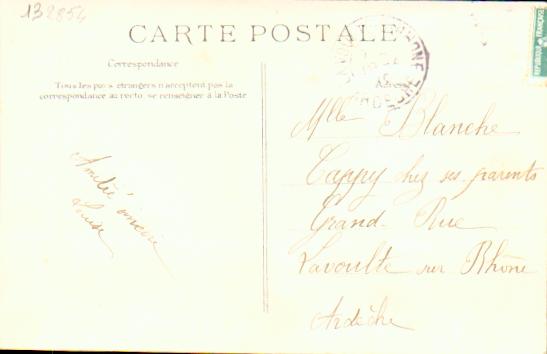 132854
CARTE POSTALE
Correspondance
Tous les pays étrangers n'acceptent pas la
correspondance au recto, se renseigner à la Poste
Adresse
RHONE
ARDECHE
REPUBLIQUE FRANÇAISE
Mlle Blanche
Cappy chez ses parents
Grand Rue
Lavoulte sur Rhône
Ardèche
Amitié sincère
Louise